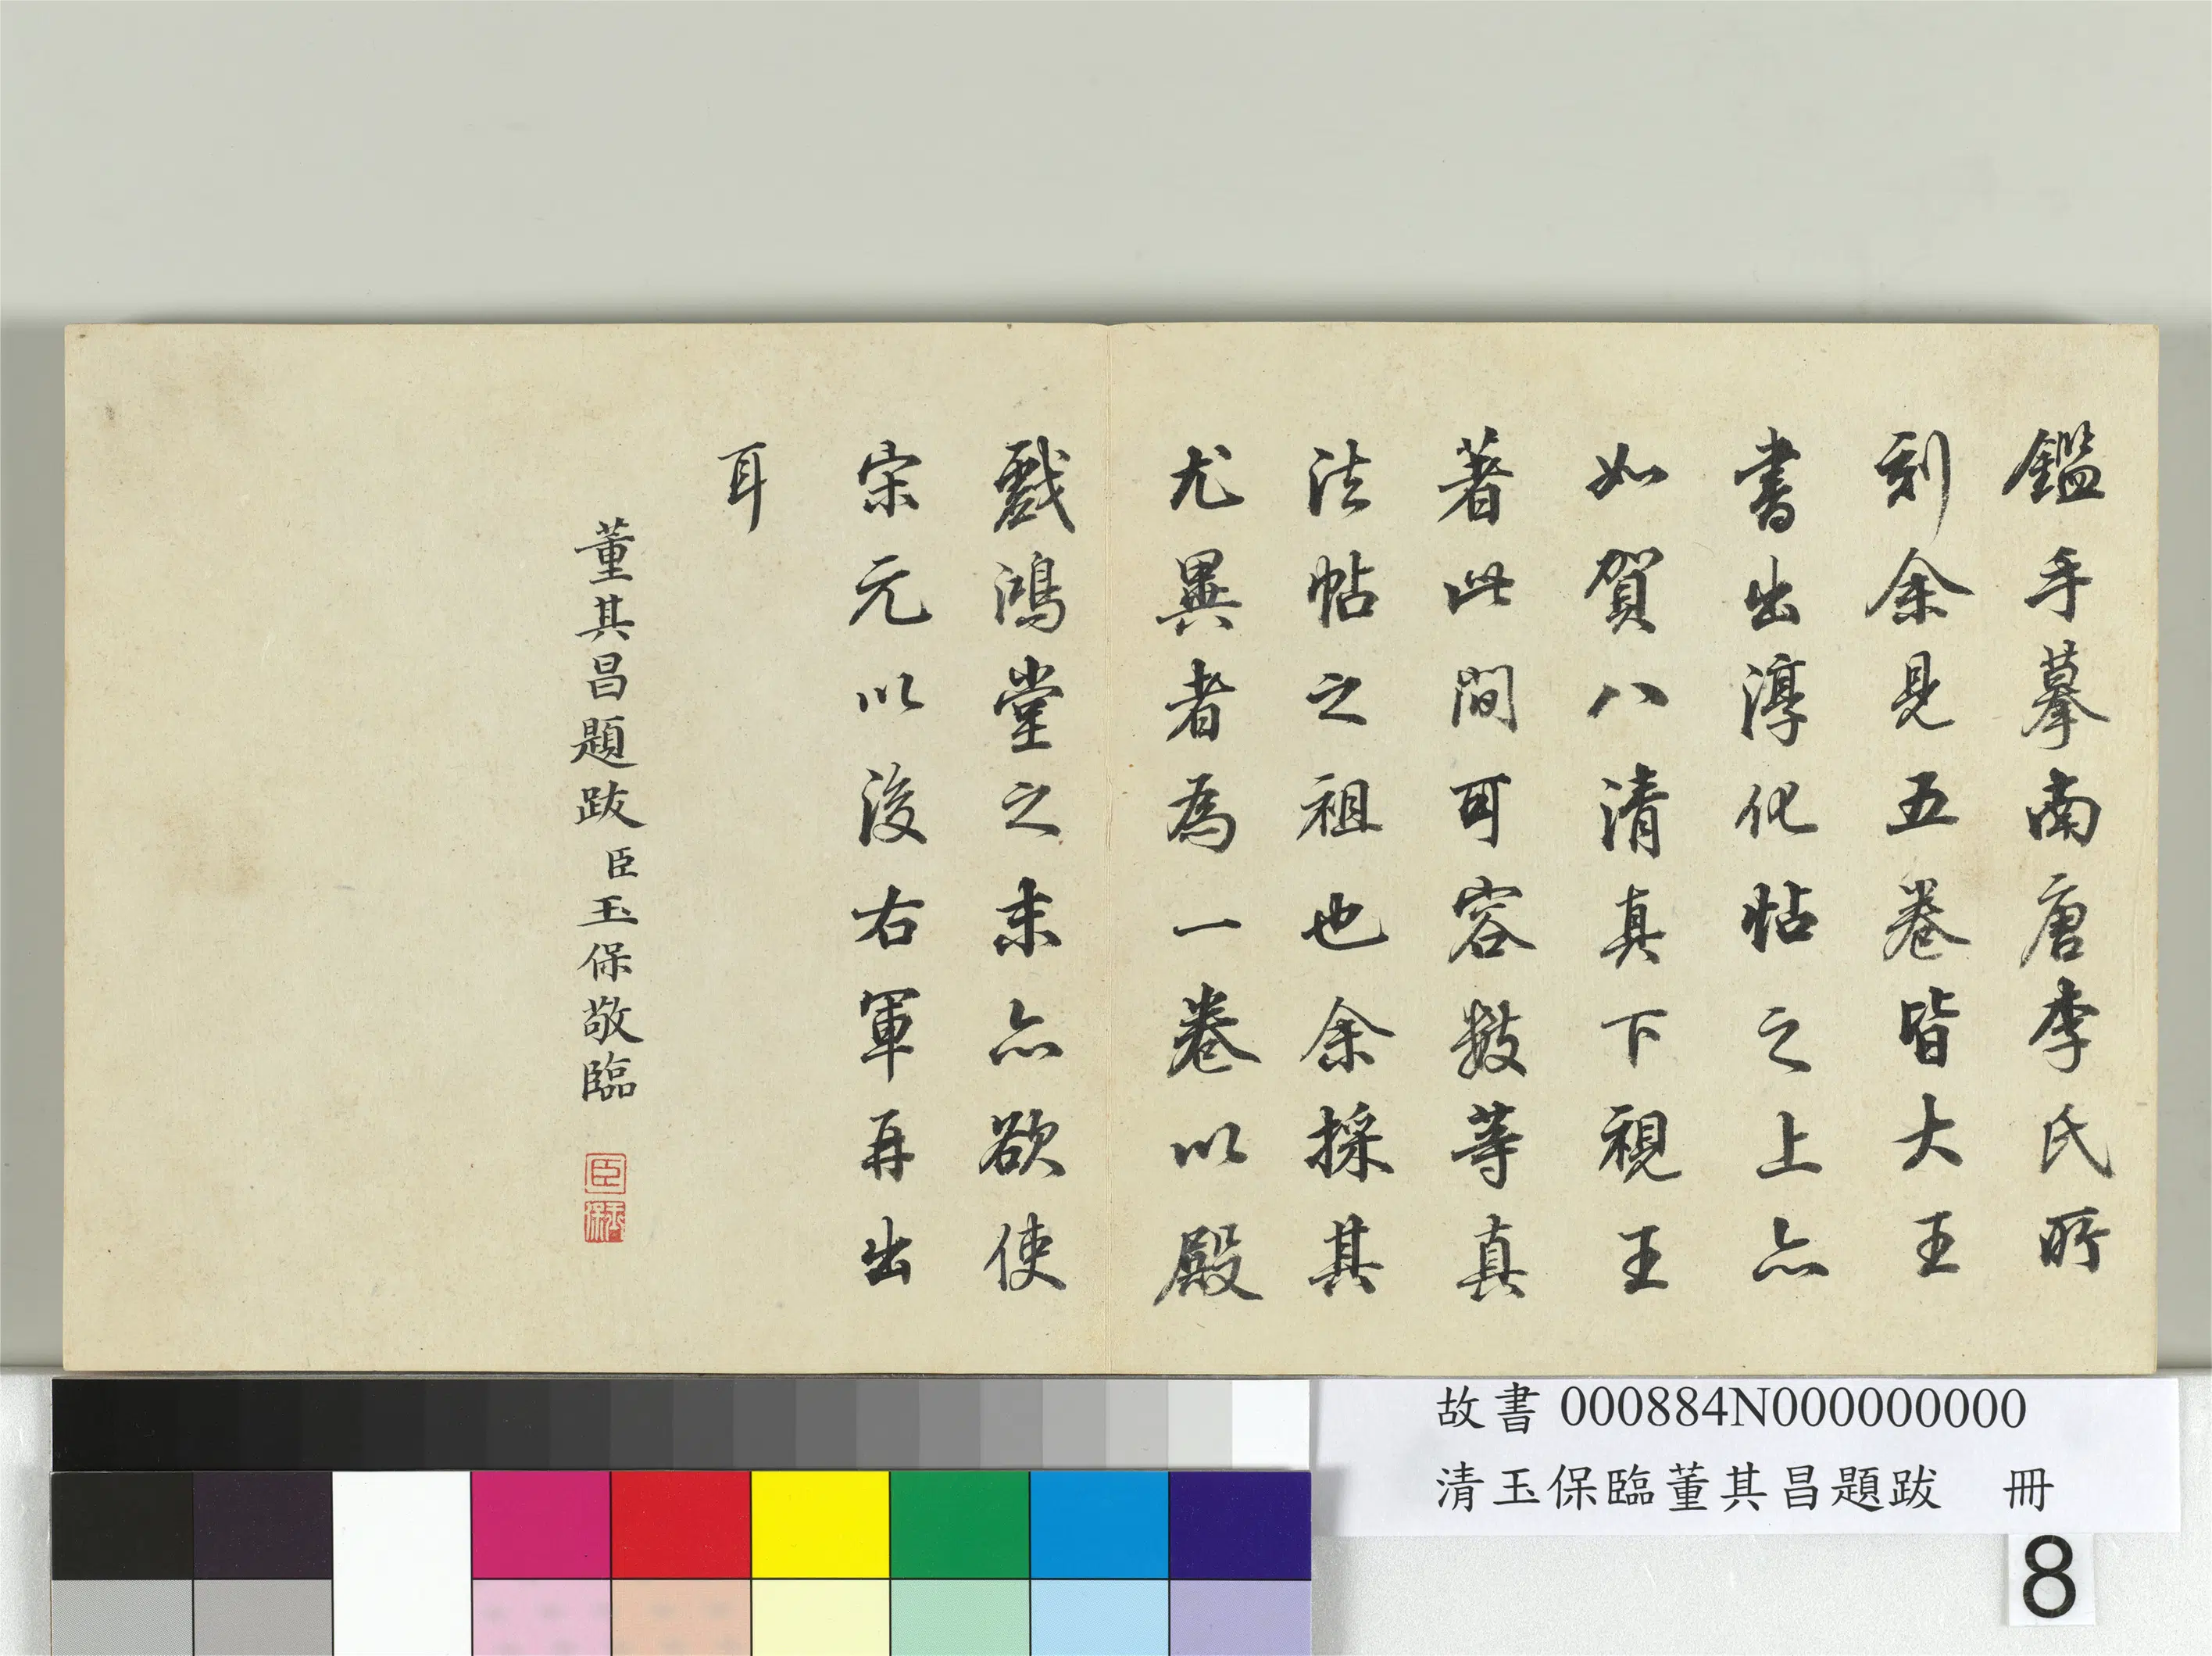 鑑手摹南唐李氏所
刻余見五卷皆大王
書出淳化帖之上亦
如賀八清真下視王
著此間可容數等真
法帖之祖也余採其
尤異者為一卷以殿
戲鴻堂之末亦欲使
宋元以後右軍再出
耳
董其昌題跋 臣玉保敬臨
臣
玉保
故書 000884N000000000
清玉保臨董其昌題跋 冊
8